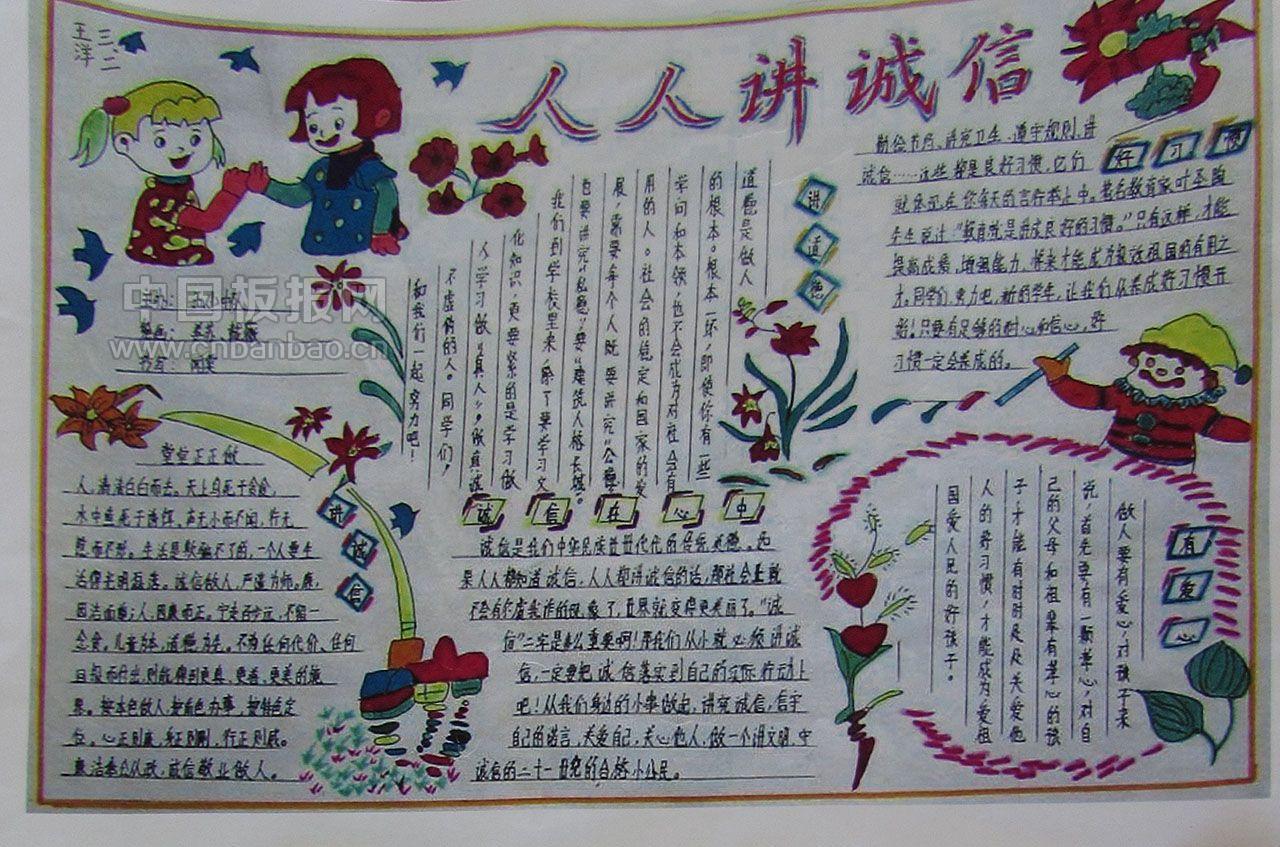 三、二
王洋
人人讲诚信
好习惯
诚信……这些都是良好习惯，它们
就体现在你每天的言行举止中。著名教育家叶圣陶
先生说过：“教育就是养成良好的习惯。”只有这样，才能
提高成绩，增强能力，将来才能成为报效祖国的有用之
才。同学们，努力吧，新的学年，让我们从养成好习惯开
始！只要有足够的耐心和信心，好
习惯一定会养成的。
讲道德
道德是做人
的根本。根本一坏，即使你有一些
学问和本领，也不会成为对社会有
用的人。社会的稳定和国家的发
展，需要每个人既要讲究“公德”
也要讲究“私德”，要“建筑人格长城”。
我们到学校里来，除了要学习文
化知识，更要紧的是学习做
人，学习做“真人”，做真诚
不虚伪的人。同学们，
和我们一起努力吧！
中国板报网
www.chbanbao.cn
讲诚信
堂堂正正做
人，清清白白而去。天上鸟死于贪食，
水中鱼死于诱饵。声无小而不闻，行无
隐而不形。生活是欺骗不了的，一个人要生
活得光明磊落。诚信做人，严谨为师。鹿，
因洁而瘦；人，因廉而正。宁走百步远，不留一
念贪。儿童为本，道德为先。不为任何代价、任何
目报而付出，则能得到更真、更善、更美的结
果。按本色做人，按角色办事，按特色定
位。心正则廉，身正则刚，行正则威。
廉洁奉公从政，诚信敬业做人。
诚信在心中
诚信是我们中华民族世世代代的传统美德。如
果人人都知道诚信，人人都讲诚信的话，那社会上就
不会有尔虞我诈的现象了，世界就变得更美丽了。“诚
信”二字是多么重要啊！那我们从小就必须讲诚
信，一定要把诚信落实到自己的实际行动上
吧！从我们身边的小事做起，讲究诚信，信守
自己的诺言，关爱自己，关心他人，做一个讲文明，守
诚信的二十一世纪的合格小公民。
有爱心
做人要有爱心，对孩子来
说，首先要有一颗孝心，对自
己的父母和祖辈有孝心的孩
子，才能有时时处处关爱他
人的好习惯，才能成为爱祖
国爱人民的好孩子。